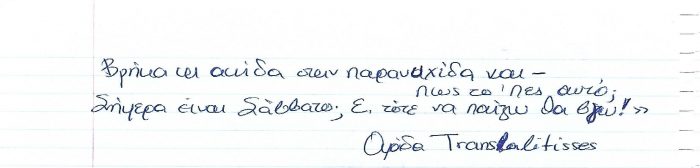 Βρήκα τη ακίδα στην παρανυχίδα και –
πως το 'πες αυτό;
Σήμερα είναι Σάββατο; Ε, τότε να παίξω θα βγω! »
Ομάδα Translatitisses